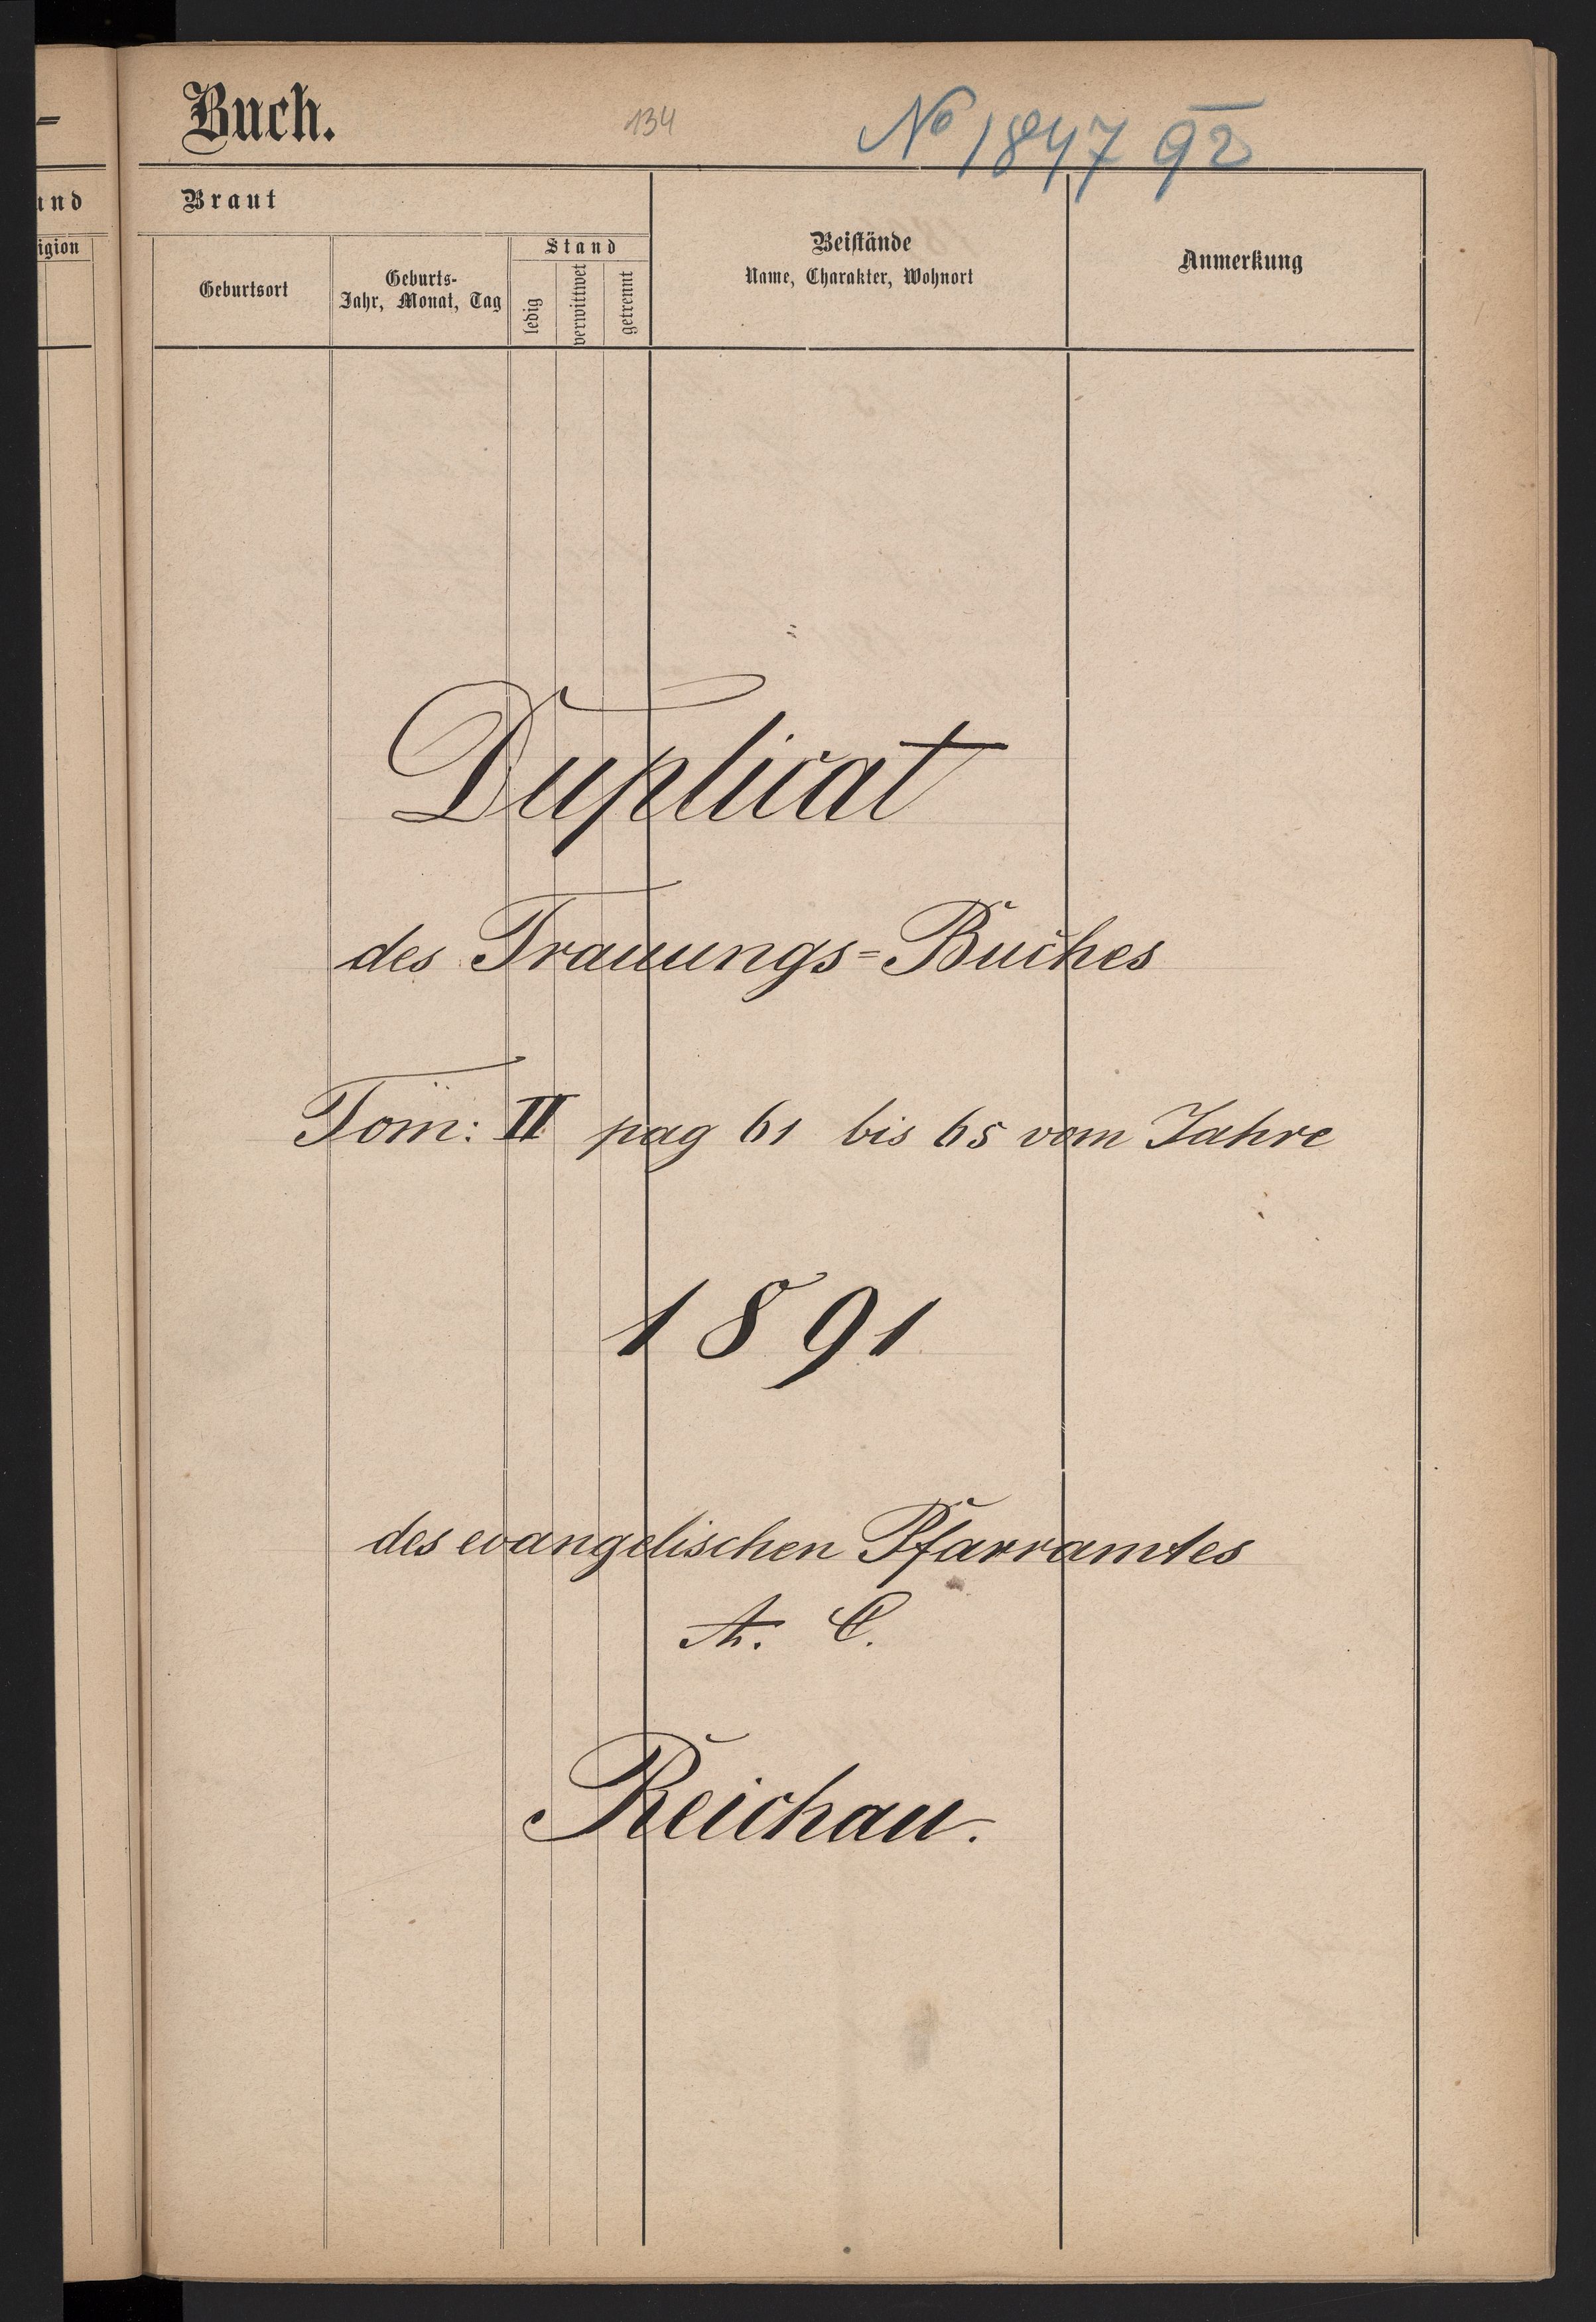 Buch.
134
No 1847 92
und
Braut
igion
Geburtsort
Geburts-
Jahr, Monat, Tag
Stand
ledig
verwittwet
getrennt
Beistände
Name, Charakter, Wohnort
Anmerkung
Duplicat
des Trauungs=Buches
Tom: II pag 61 bis 65 vom Jahre
1891
des evangelischen Pfarramtes
A. C.
Reichau.